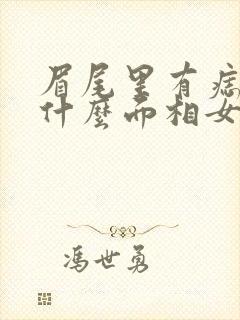 眉尾里有痣
什麼面相女
冯世勇